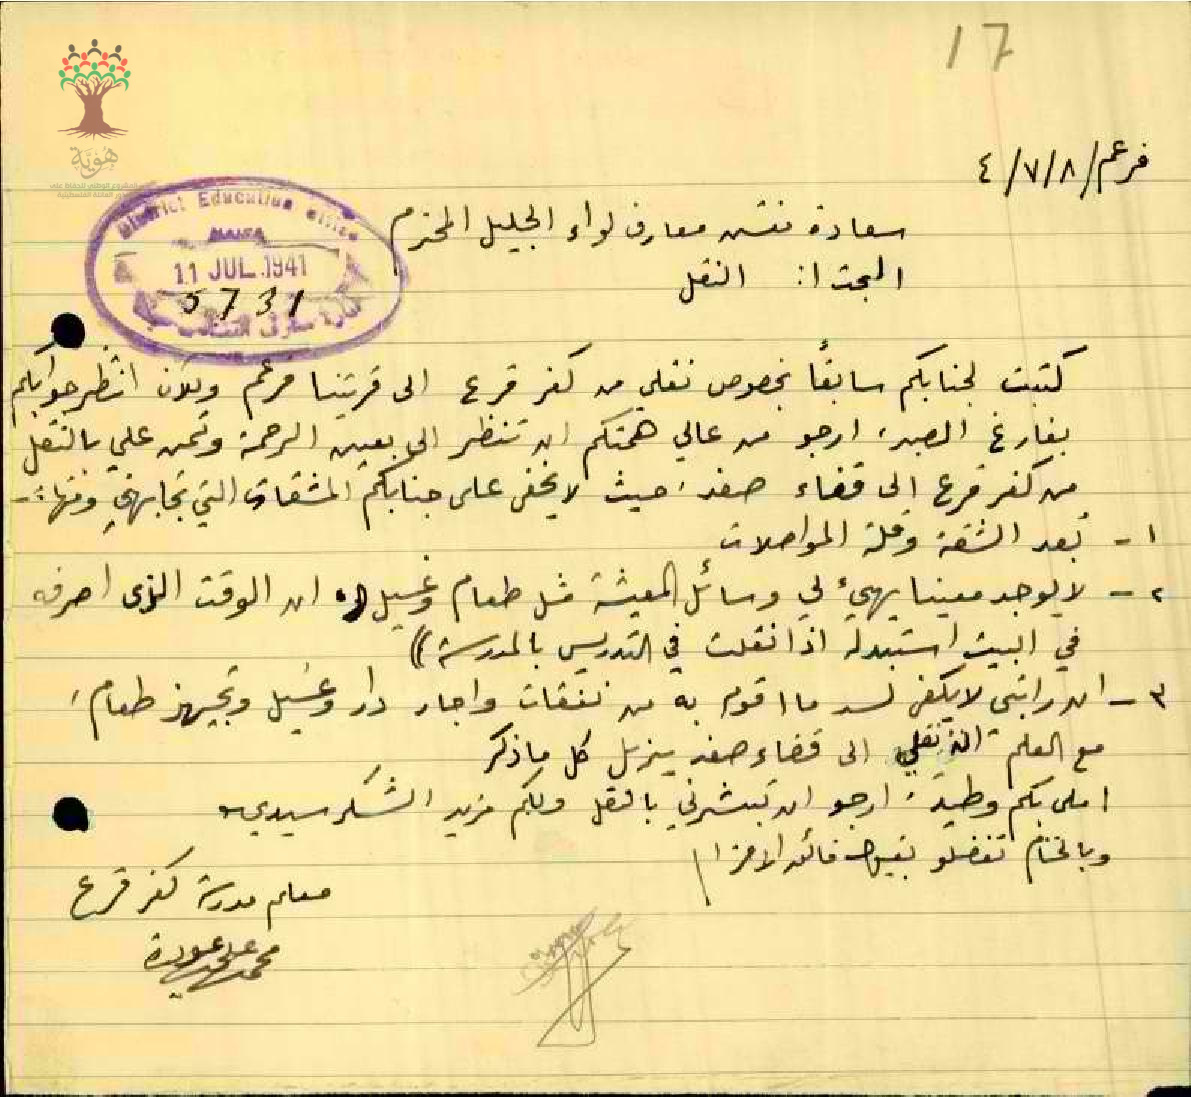 17
فرعم ٨/٧/٤١
District Education Office
HAIFA
11 JUL 1941
5731
هُوِيَّة
سعادة مفتش معارف لواء الجليل المحترم
المبتدا: النقل
كتبت لجنابكم سابقاً بخصوص نقلي من كفر قرع الى قريتنا فرعم وللآن انتظر جوابكم
بفارغ الصبر، ارجو من عالي همتكم ان تنظر الى بعين الرحمة وتمن علي بالنقل
من كفر قرع الى قضاء صفد، حيث لا يخفى على جنابكم المشقات التي تجابهني ومنها:-
١- بُعد الشقة وقلة المواصلات
٢- لا يوجد معينا يهيئ لي وسائل المعيشة مثل طعام وغسيل (( ان الوقت الذى اصرفه
في البيت استبدله اذا نقلت في التدريس بالمدرسة ))
٣- ان راتبي لا يكفي لسد ما اقوم به من نفقات واجار دار وغسيل وتجهيز طعام،
مع العلم ان نقلي الى قضاء صفد يزيل كل ما ذكر
املي بكم وطيد، ارجو ان تبشرني بالنقل ولكم مزيد الشكر سيدي.
وبالختام تفضلو بقبول فائق الاحترام
معلم مدرسة كفر قرع
محمد علي عودة